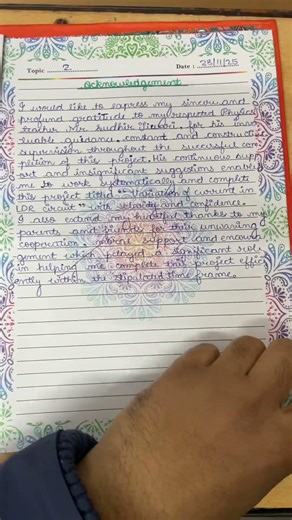 Topic 2 Date: 28/11/25
Acknowledgement
I would like to express my sincere and
profound gratitude to my respected Physics
teacher Mr. Sudhir Tiwari, for his inva-
luable guidance, constant and constructive
supervision throughout the successful com-
pletion of this project. His continuous supp-
ort and insignificant suggestions enabled
me to work systematically and complete
this project titled "Variation of current in
LDR with and confidence.
I also extend my heartful thanks to my
parents and friends for their unwavering
cooperation, moral support and encoura-
gement which played a significant role
in helping me complete this project effici-
ently within the stipulated time frame.